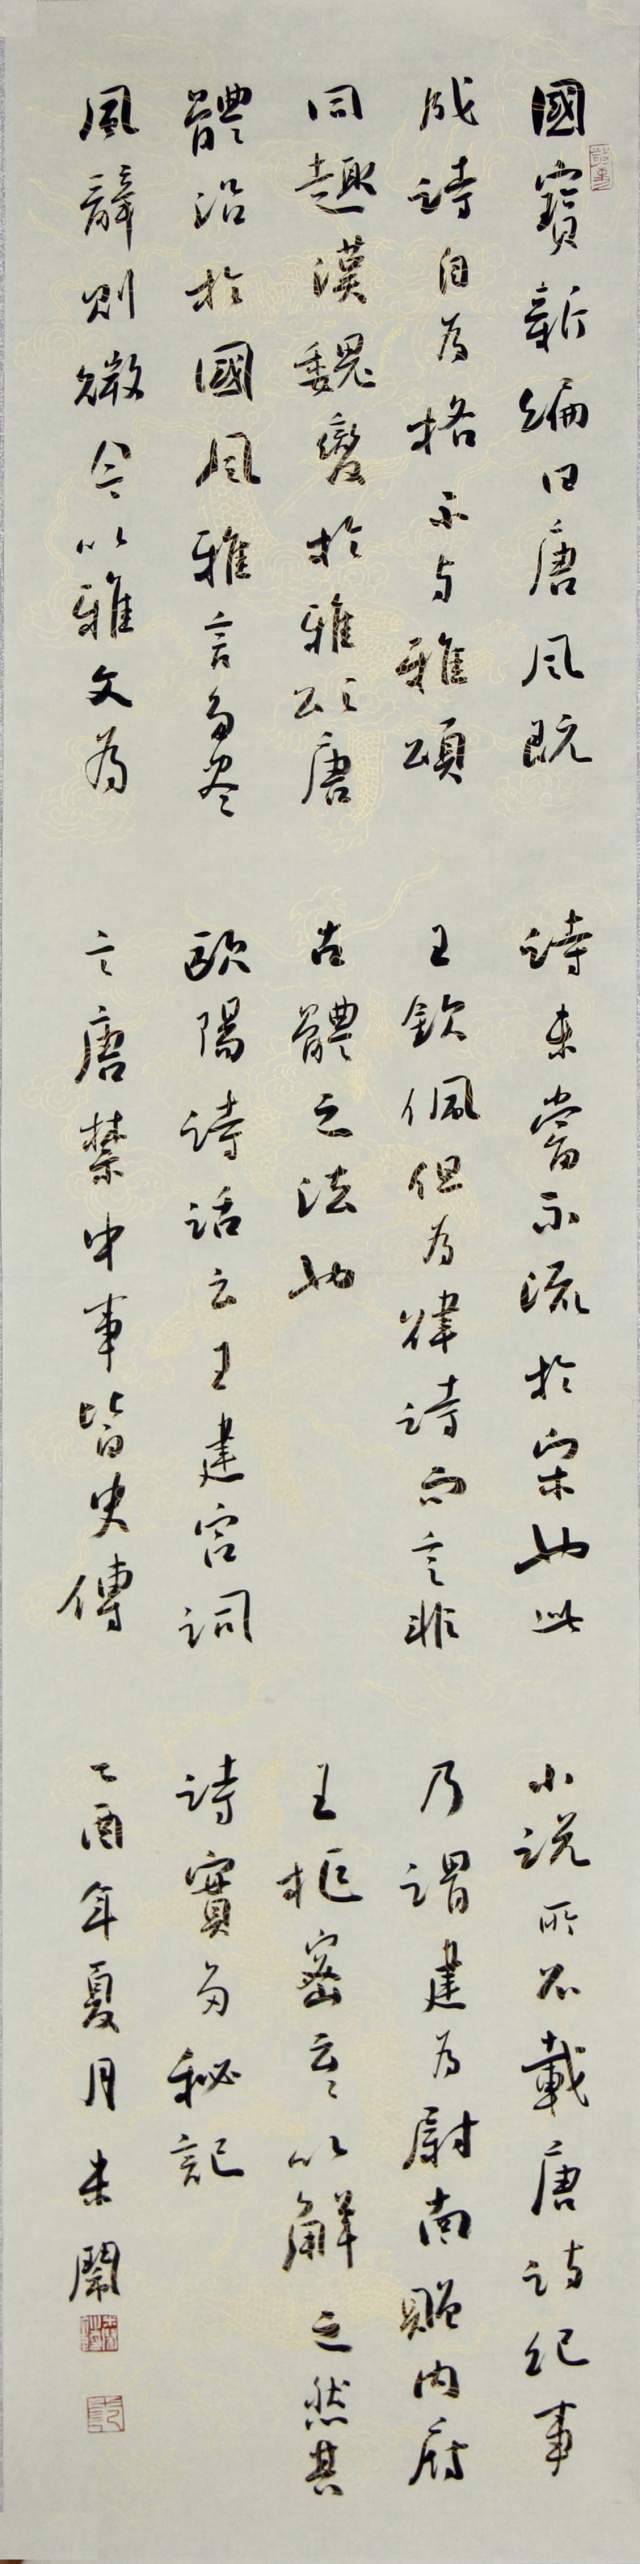 國寶新編曰唐風既
成詩自為格不与雅頌
同趣漢魏變於雅頌唐
體沿於國風雅言多盡
風辭則微今以雅文為
詩未嘗不流於宋也此
王欽佩但為律詩而言非
古體之法也
歐陽詩話云王建宮詞
言唐禁中事皆史傳
小说所不載唐詩紀事
乃謂建為尉南贈内府
王枢密云云以解之然其
詩實多秘記
乙酉年夏月